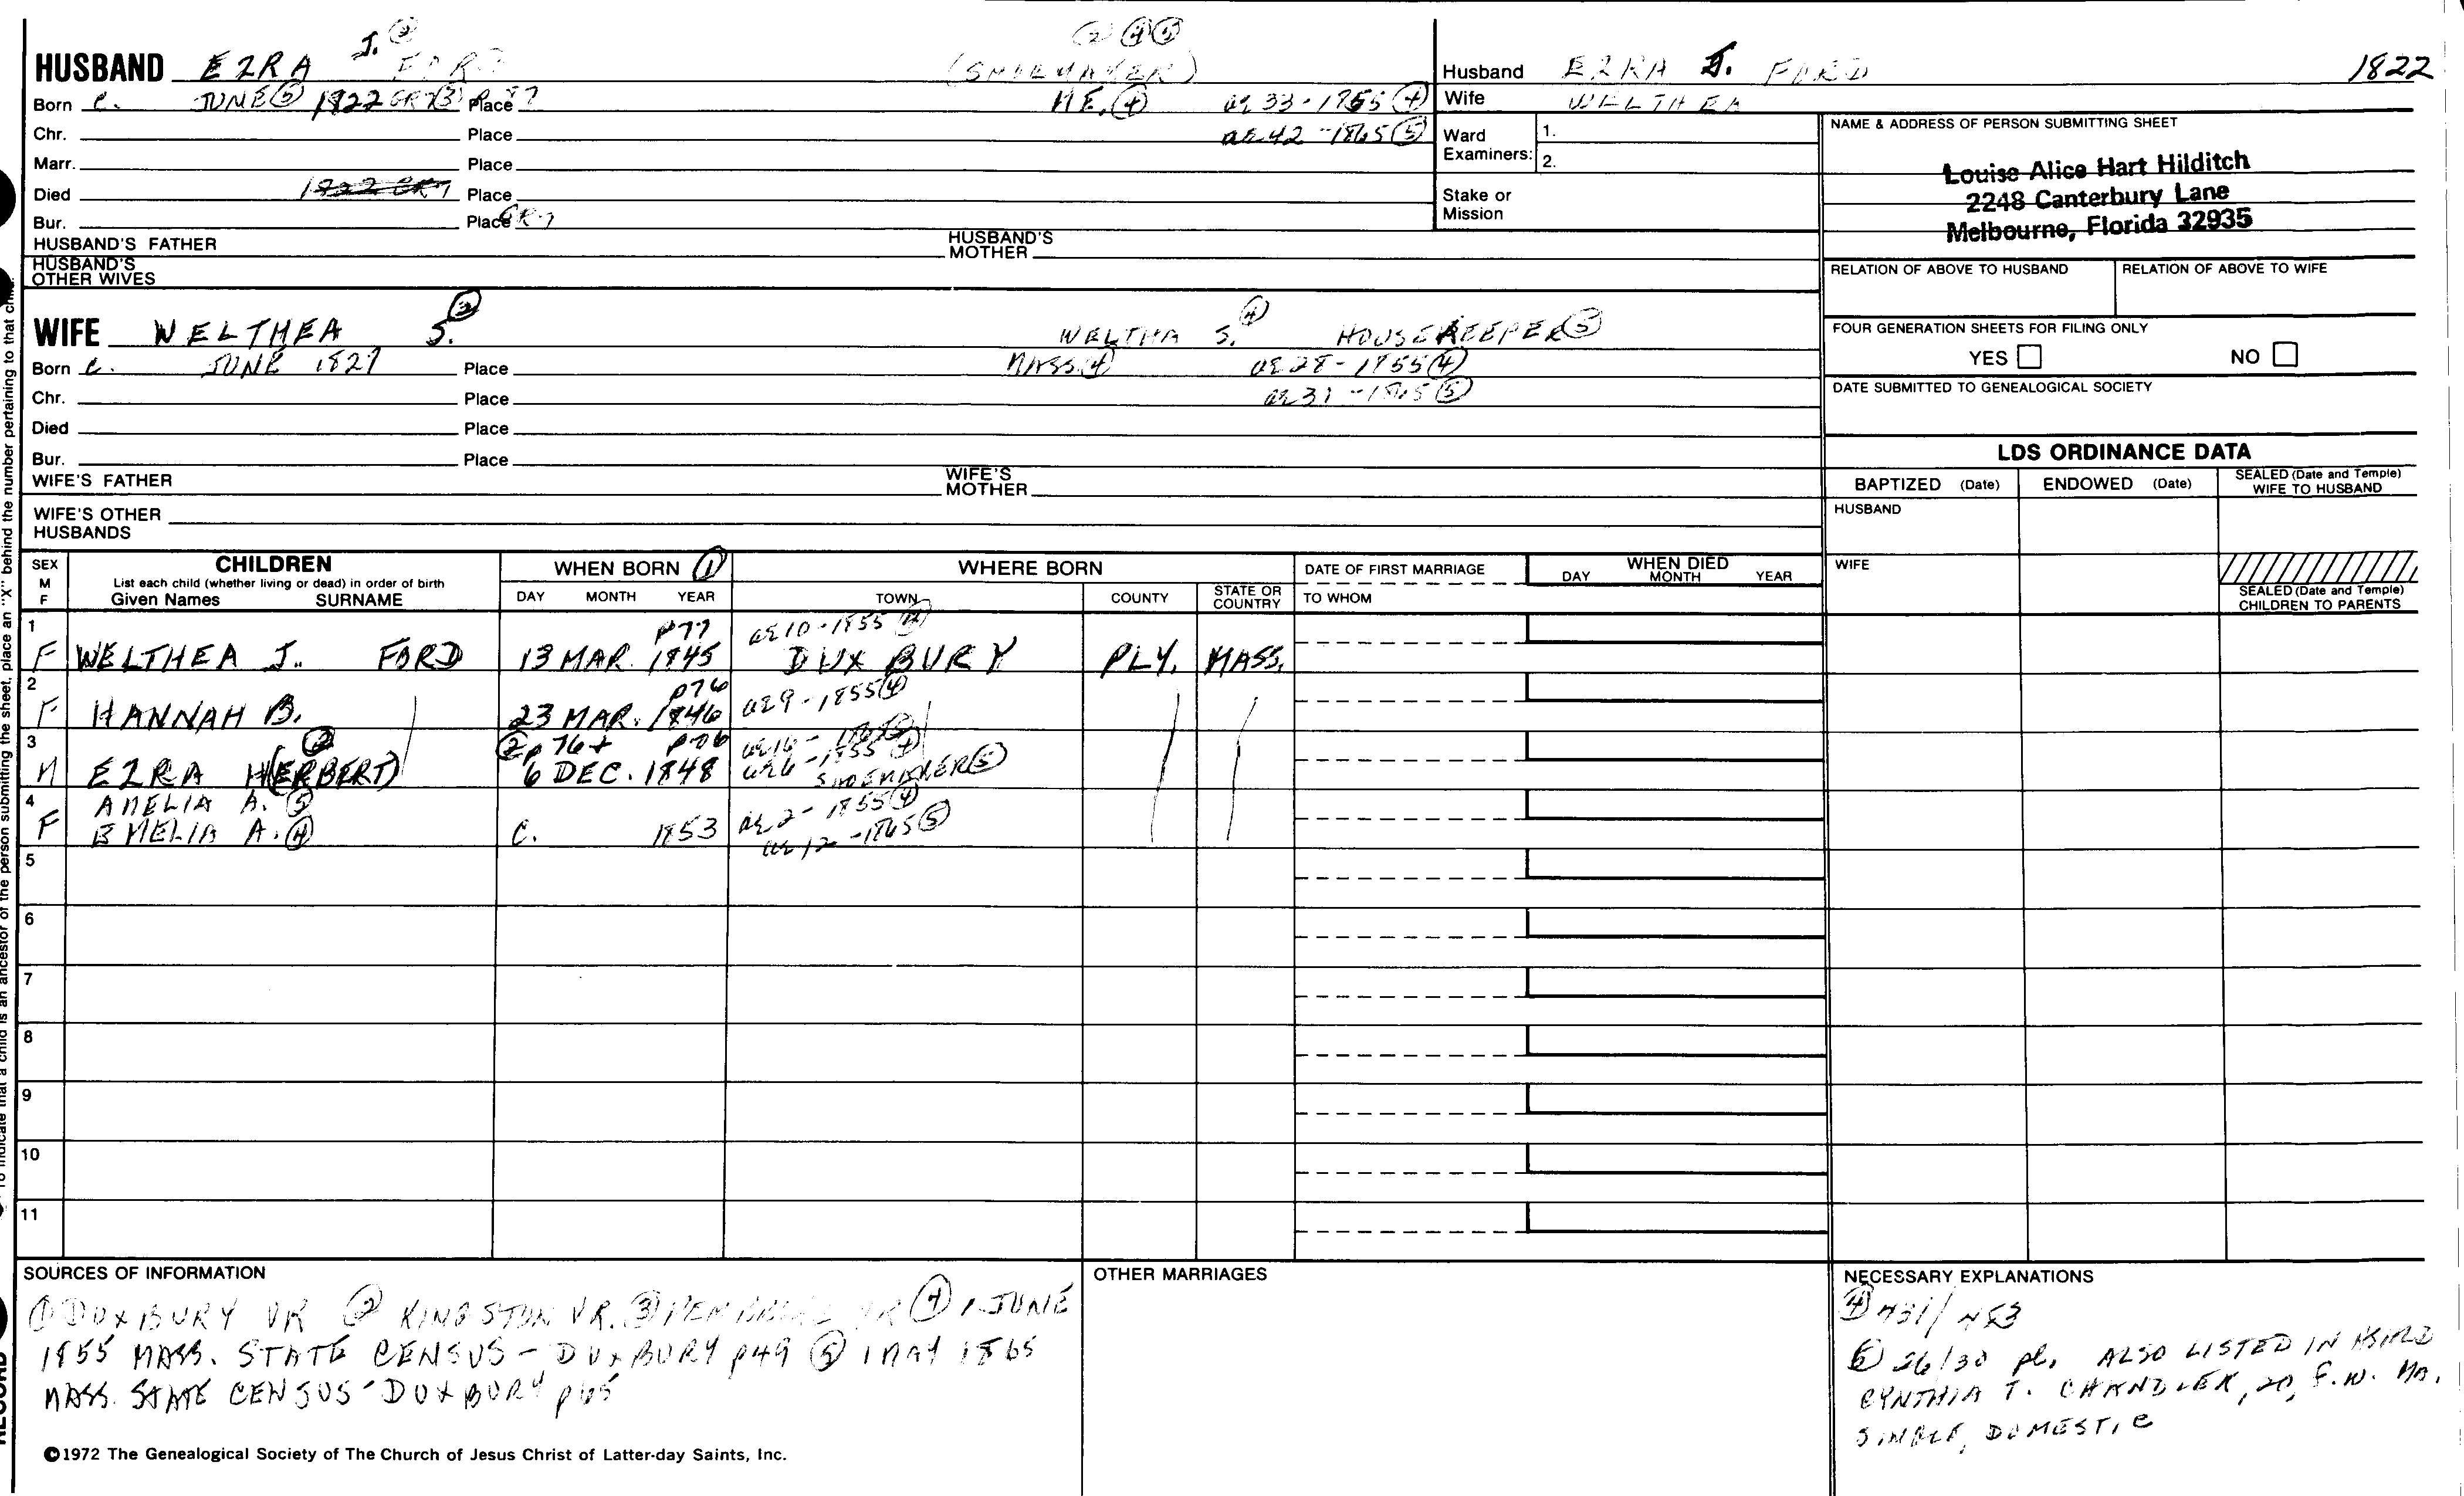 HUSBAND EZRA J. ② FORD (SHOEMAKER) ② ④ ⑤
Born c. JUNE ⑤ 1822 GR7 ③ Place ME. ④ ae 33-1855 ④
Chr. Place ae 42-1865 ⑤
Marr. Place
Died 1822 GR7 Place
Bur. Place GR7
HUSBAND'S FATHER HUSBAND'S MOTHER
HUSBAND'S OTHER WIVES
Husband EZRA J. FORD 1822
Wife WELTHEA
Ward Examiners: 1.
2.
Stake or Mission
NAME & ADDRESS OF PERSON SUBMITTING SHEET
Louise Alice Hart Hilditch
2248 Canterbury Lane
Melbourne, Florida 32935
RELATION OF ABOVE TO HUSBAND RELATION OF ABOVE TO WIFE
FOUR GENERATION SHEETS FOR FILING ONLY
YES NO
DATE SUBMITTED TO GENEALOGICAL SOCIETY
WIFE WELTHEA S. ③ WELTHA S. ④ HOUSEKEEPER ⑤
Born c. JUNE 1827 Place MASS ④ ae 28-1855 ④
Chr. Place ae 31-1865 ⑤
Died Place
Bur. Place
WIFE'S FATHER WIFE'S MOTHER
WIFE'S OTHER HUSBANDS
LDS ORDINANCE DATA
BAPTIZED (Date) ENDOWED (Date) SEALED (Date and Temple) WIFE TO HUSBAND
HUSBAND
WIFE
SEALED (Date and Temple) CHILDREN TO PARENTS
SEX M F CHILDREN
List each child (whether living or dead) in order of birth
Given Names SURNAME
WHEN BORN ①
DAY MONTH YEAR
WHERE BORN
TOWN COUNTY STATE OR COUNTRY
DATE OF FIRST MARRIAGE
TO WHOM
WHEN DIED
DAY MONTH YEAR
1 p77 ae 10-1855 ④
F WELTHEA J. FORD 13 MAR. 1845 DUXBURY PLY. MASS.
2 p76 ae 9-1855 ④
F HANNAH B. 23 MAR. 1846
3 ② ② p76+ p76 ae 16-
M EZRA H(ERBERT) 6 DEC. 1848 ae 6-1855 ④ SHOEMAKER ⑤
4 AMELIA A. ⑤ ae 2-1855 ④
F EMELIA A. ④ c. 1853 ae 12-1865 ⑤
5
6
7
8
9
10
11
SOURCES OF INFORMATION
① DUXBURY VR ② KINGSTON VR. ③ PEMBROKE VR ④ 1 JUNE
1855 MASS. STATE CENSUS - DUXBURY p49 ⑤ 1 MAY 1865
MASS. STATE CENSUS - DUXBURY p65
OTHER MARRIAGES
NECESSARY EXPLANATIONS
④ 431/453
⑤ 26/30 pl. ALSO LISTED IN
CYNTHIA T. CHANDLER, 20, F.W. MA.
SINGLE, DOMESTIC
©1972 The Genealogical Society of The Church of Jesus Christ of Latter-day Saints, Inc.
place an "X" behind the number pertaining to that child.
To indicate that a child is an ancestor of the person submitting the sheet,
RECORD